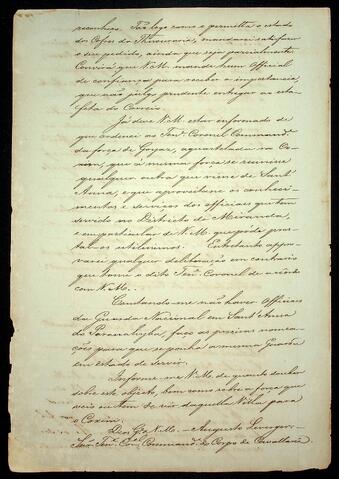 reconheço. Tão logo como o permitta o estado
dos Cofres da Thesouraria, mandarei satisfazer
o seu pedido, ainda que seja parcialmente.
Convirá que V.M. mande hum Official
de confiança para receber a importancia,
que não julgo prudente entregar ao esta-
feta do Correio.
Já deve V.M. estar informado de
que ordenei ao Tenᵉ Coronel Commandᵉ
da força de Goyaz, aquartelada no Co-
xim, que á mesma força se reunisse
qualquer outra que viesse de Sant'
Anna, e que aproveitasse os conheci-
mentos e serviços dos officiaes que tem
servido no Districto de Miranda,
e em particular de V.M. que pode pres-
tal-os utilissimos. Entretanto appro-
varei qualquer deliberação em contrario
que tome o dito Tenᵉ Coronel de acôrdo
com V.M.
Constando-me não haver Officiaes
da Guarda Nacional em Sant'Anna
do Paranahyba, faço as precisas nomea-
ções para que se ponha a mesma Guarda
em estado de servir.
Informe-me V.M. de quanto souber
sobre este objecto, bem como sobre a força que
veio ou tem de vir daquella Villa para
o Coxim.
Deos Gᵉ a V.M. - Augusto Leverger -
Snr Tenᵉ Coᵉˡ Commandᵉ do Corpo de Cavallaria